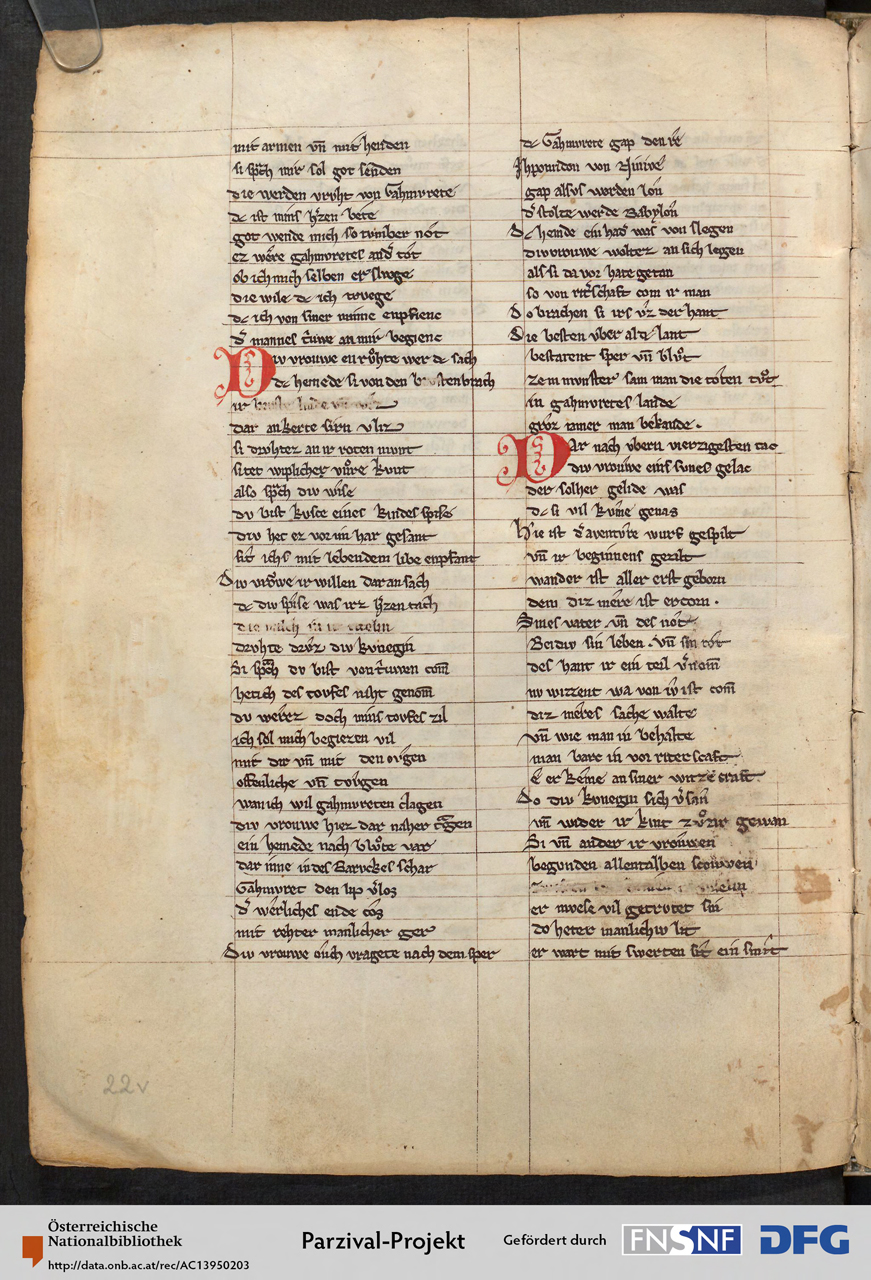 mit armen vn̄ mit henden
si sp̄ch mir sol got senden
die werden vruht von Gahmvrete
dc ist mins h̾zen bete
got wende mich so tvmber not
ez were gahmvretes and̾ tot
ob ich mich selben erslvoge
die wile dc ich trvege
dc ich von siner minne enpfienc
d̾ mannes triwe an mir begienc
Div vrouwe enrvͦhte wer dc sach
dc hemede si von den brvsten brach
ir
dar ankerte sirn vliz
si drvhtez an ir roten mvnt
si tet wiplicher vvͦre kvnt
also sp̄ch div wise
dv bist kaste eines kindes spise
div het er vor im har gesant
sit ichs mit lebendem libe enpfant
Div vrowe ir willen dar an sach
dc div spise was irz h̾zen tach
die milch in ir
drvhte drvz div kvnegin
Si sp̄ch dv bist von triwen com̄
het ich des tovfes niht genom̄
dv werez doch mins tovfes zil
ich sol mich begiezen vil
mit dir vn̄ mit den ovgen
offenliche vn̄ tovgen
wan ich wil gahmvreten clagen
div vrouwe hiez dar naher tragen
ein hemede nach blvͦte var
dar inne in des Baruckes schar
Gahmvret den lip v̾los
d̾ werliches ende cos
mit rehter manlicher ger
Div vrouwe ovch vragete nach dem sper
dc Gahmvrete gap den re
Ihpomidon von Ninive
gap alsvs werden lon
d̾ stolze werde Babylon
Dc hemde ein had̾ was von slegen
div vrouwe woltez an sich legen
als si da vor hate getan
so von rit̾schaft com ir man
Do brachen si irs vz der hant
Die besten vber al dc lant
bestatent sper vn̄ blvͦt
zem mvnster sam man die toten tvͦt
in gahmvretes lande
groz iamer man bekande.
Dar nach vbern vierzigesten tac
div vrouwe eins svnes gelac
der solher gelide was
dc si vil kvme genas
Hie ist d̾ aventvre wurf gespilt
vn̄ ir beginnens gezilt
wander ist aller erst geborn
dem diz mere ist ercorn.
Sines vater vn̄ des not
Beidiv sin leben. vn̄ sin tot
des hant ir ein teil v̾nom̄
nv wizzent wa von iv ist com̄
diz meres sache walte
vn̄ wie man in behalte
man barc in vor riterscaft
E er keme an siner witze craft.
Do div kvnegin sich v̾san
vn̄ wider ir kint zvͦ zir gewan
Si vn̄ ander ir vrouwen
begonden allenthalben scouwen
er mvese vil getrvtet sin
do heter manlichiv lit
er wart mit swerten sit ein smit
22v
Österreichische
Nationalbibliothek
http://data.onb.ac.at/rec/AC13950203
Parzival-Projekt
Gefördert durch
FNSNF
DFG